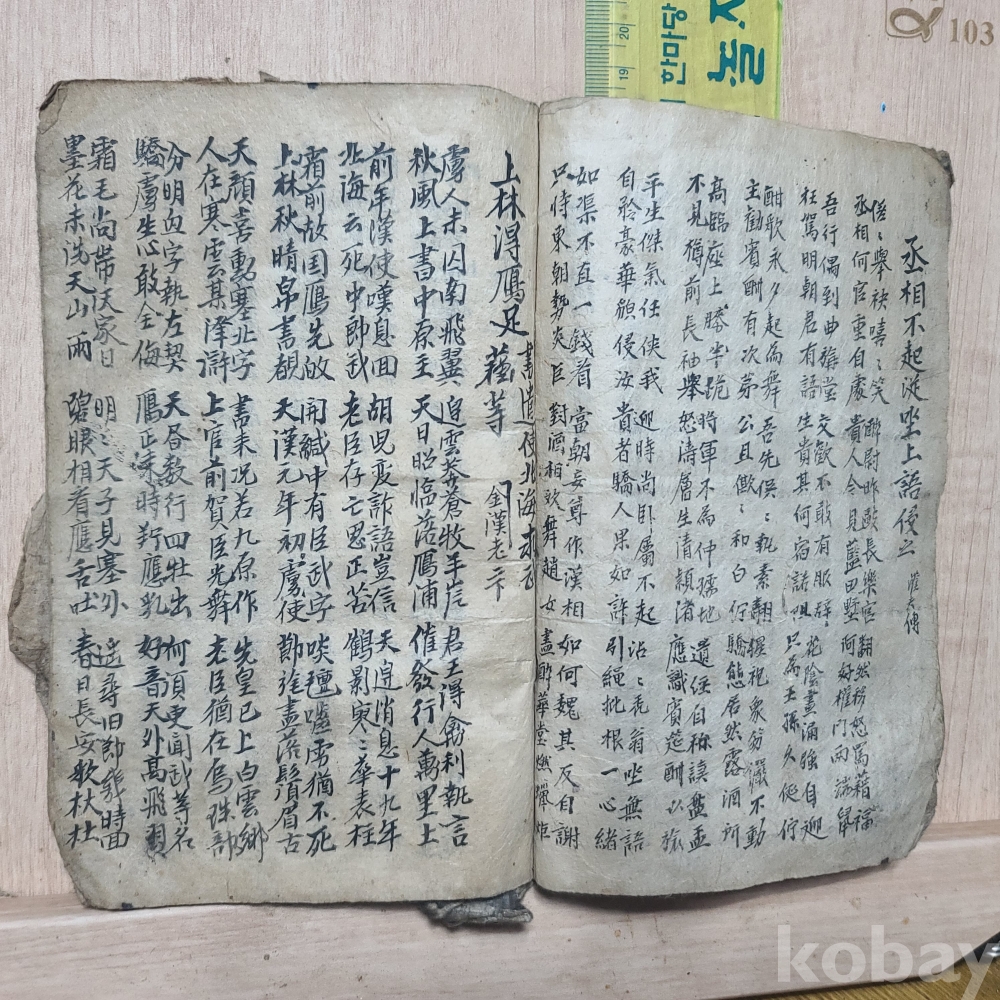 丞相不起延坐上語侵之
僛々舉袂嘻々笑 醉尉昨毆長樂宮 翻然移怒罵藉福
丞相何官重自處 貴人今見藍田墅 何好權門兩端鼠
吾行偶到曲旃堂 交歡不敢有服辞 花陰盡涌強自迎
狂罵明朝君有語 生貴其何宿諾 只為王孫久
酣歌永夕起為舞 吾先侯々執素翻 不動
主勸賓酬有次第 公且儺々和白佇 驕態居然露酒所
高臨座上勝半跪 時軍不為仲孺地 自称誤盡盃
不見樽前長袖舉 怒濤層生清潁渚 應識賓筵酬以旅
平生傑氣任俠我 迎時尚卧屬不起 沾々老翁坐無語
自矜豪華頟侵汝 貴者驕人果如許 引繩批根一心緒
如渠不直一錢看 當朝妄尊作漢相 如何魏其反自謝
只恃東朝勢炎巨 對酒相效舞趙女 盡醉華堂燃
上林得鴈足書遣使北海求武
蘓等
金漢老
虜人未囚南飛翼 迫雲莽蒼牧羊岸 君王得禽利執言
秋風上書中原主 天日昭臨落鴈浦 催發行人萬里上
前年漢使嘆息回 胡兒変詐語豈信 天邊消息十九年
北海云死中郎武 老臣存亡思正苦 鶴影寒々華表柱
霜前故国鴈先故 開緘中有臣武字 啖氊囓雪猶不死
上林秋晴帛書覩 天漢元年初虜使 節旄盡落鬚眉古
天顔喜動塞北字 書来况若九原作 先皇已上白雲鄉
人在寒雲某澤滸 上官前賀臣光舞 老臣猶在烏珠部
分明血字執左契 天昏數行四牡出 何須更聞武等名
驕虜生心敢余侮 鴈正時斯應乳 好音天外高飛羽
霜毛尚帶汉家日 明々天子見塞外 遙尋旧節幾時回
墨花未洗天山雨 碧眼相看應舌吐 春日長安歌杕杜
놀
한마당
19
20
103
kobay